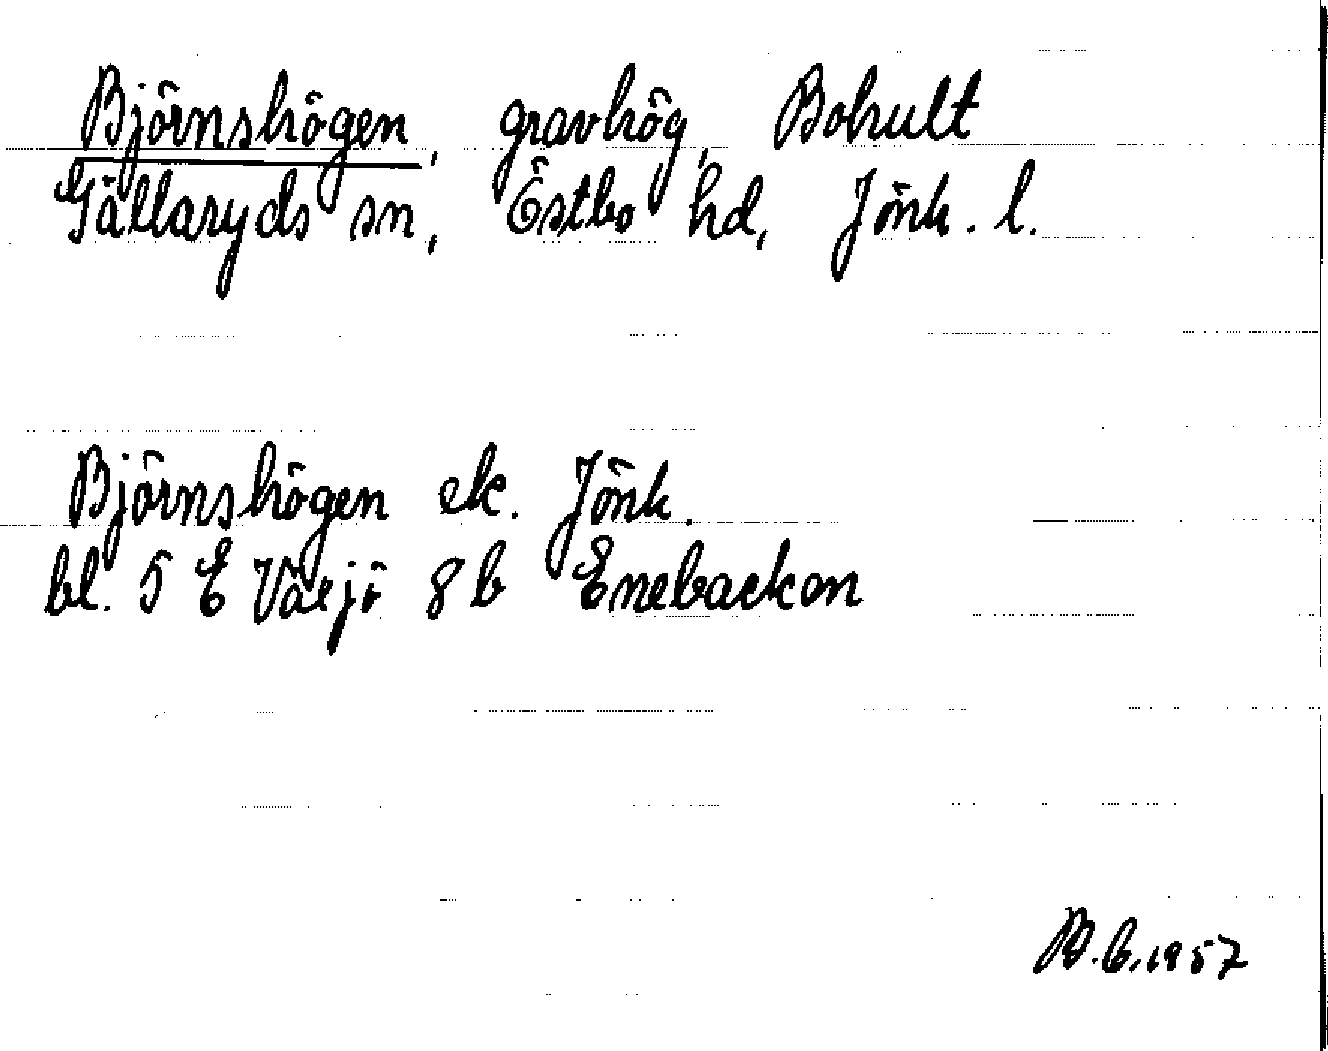 Björnshögen, gravhög, Bohult
Gällaryds sn, Östbo hd, Jönk. l.
Björnshögen ek. Jönk.
bl. 5 E Växjö 8 b Enebackon
B.E. 1957